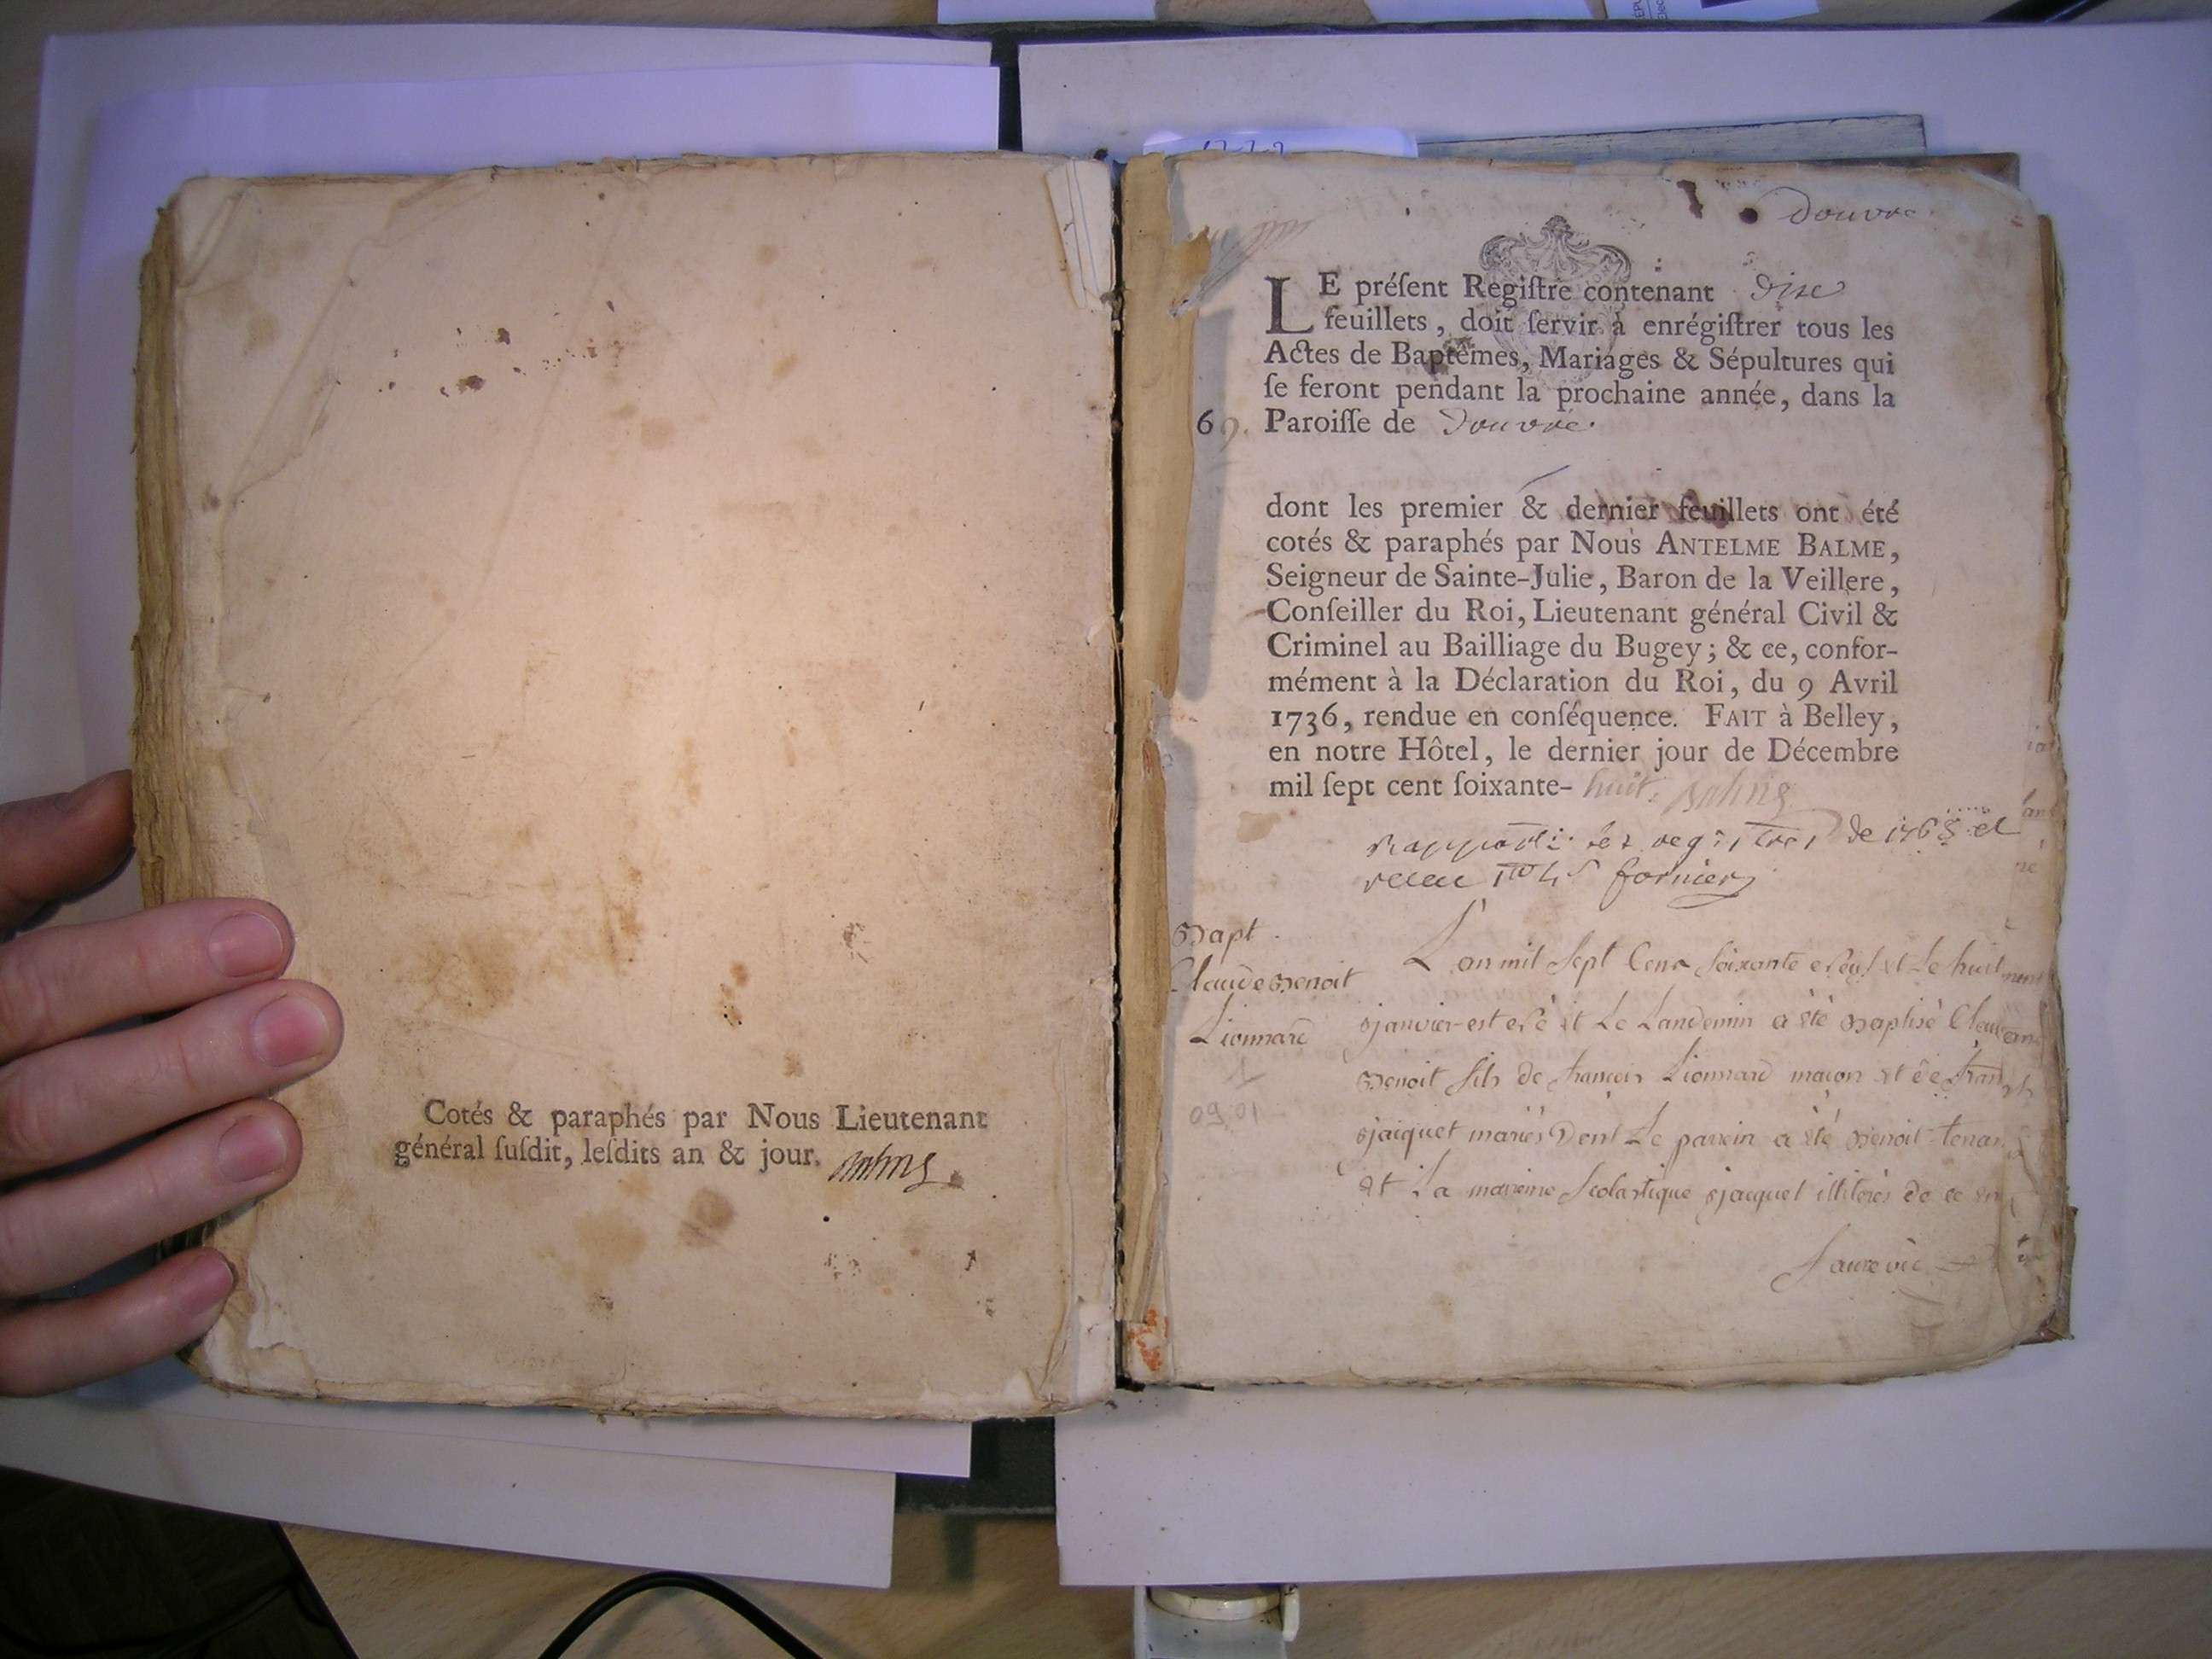 Cotés & paraphés par Nous Lieutenant
général ſuſdit, leſdits an & jour.
Douvre
LE préſent Regiſtre contenant dixe
feuillets, doit ſervir à enrégiſtrer tous les
Actes de Baptêmes, Mariages & Sépultures qui
ſe feront pendant la prochaine année, dans la
69. Paroiſſe de Douvre.
dont les premier & dernier feuillets ont été
cotés & paraphés par Nous ANTELME BALME,
Seigneur de Sainte-Julie, Baron de la Veillere,
Conſeiller du Roi, Lieutenant général Civil &
Criminel au Bailliage du Bugey; & ce, confor-
mément à la Déclaration du Roi, du 9 Avril
1736, rendue en conſéquence. FAIT à Belley,
en notre Hôtel, le dernier jour de Décembre
mil ſept cent ſoixante- huit.
Rapporté les registres de 1768 et
fornier
Bapt
Claude Benoit
Lionnard
L'an mil Sept Cens Soixante et Le huit
janvier est et Le Landemin a été Baptisé
Benoit fils de francois Lionnard maçon et de
jaiquet mariés Dont Le parrein a été Benoit tenan
et La mareine Scolastique jacquet illiterés de ce